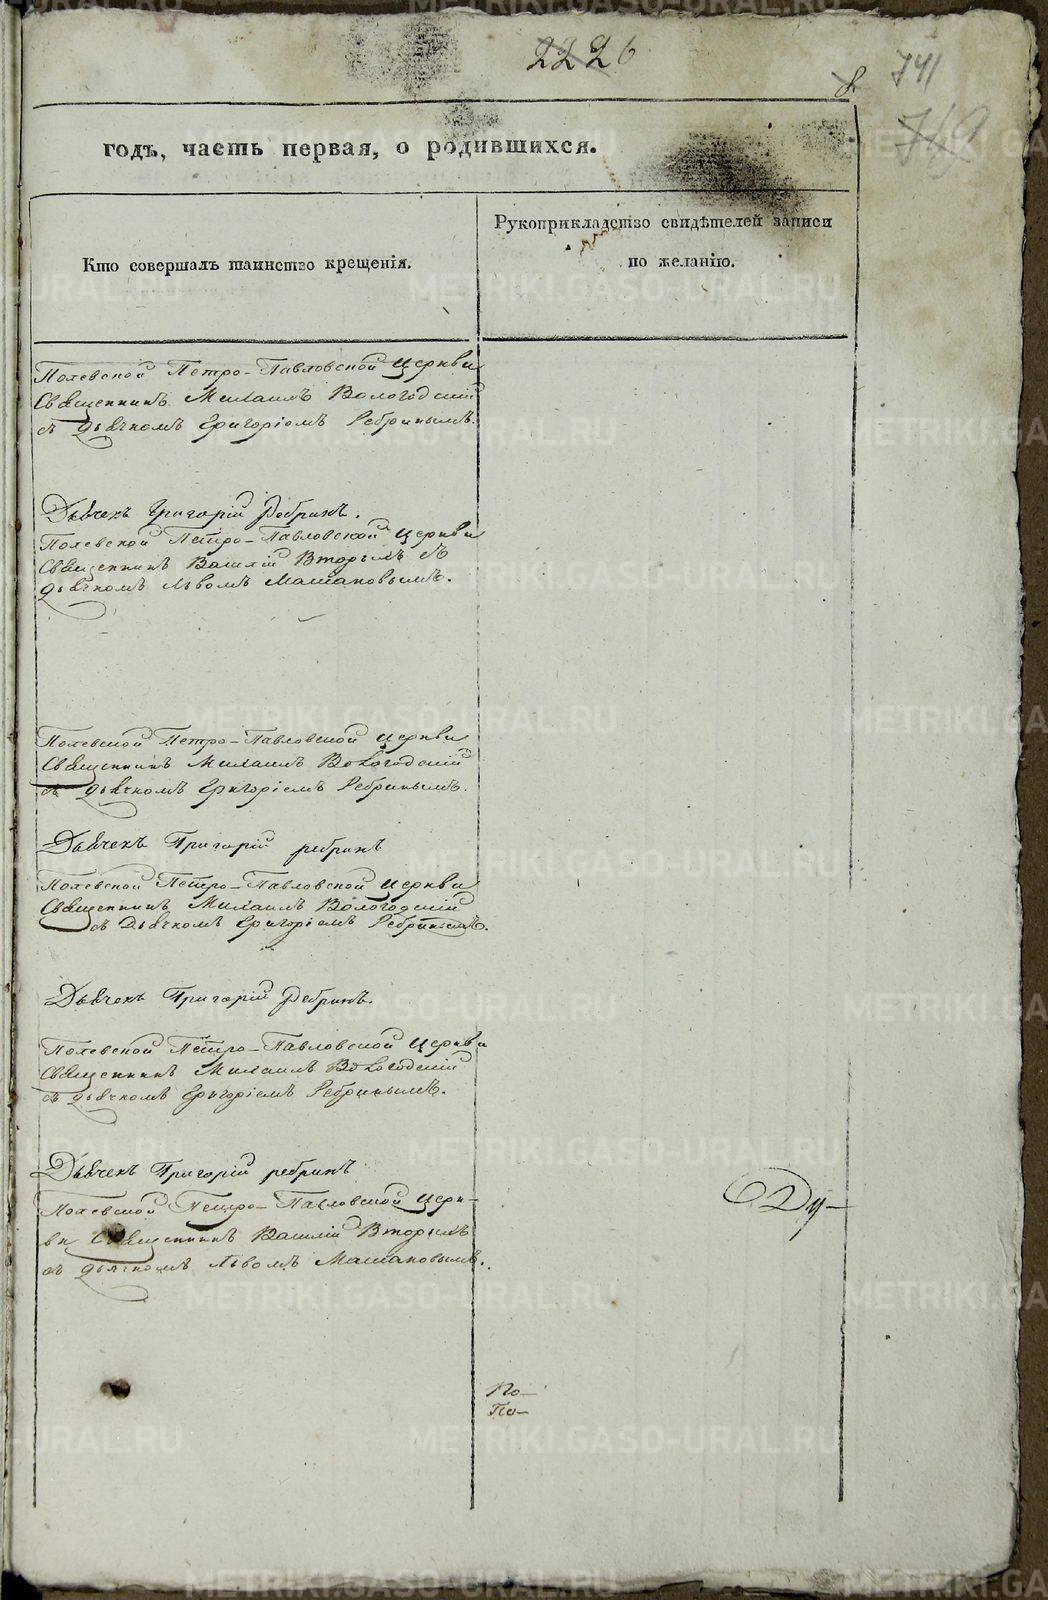 2226
741
749
годъ, часть первая, о родившихся.
Кто совершалъ таинство крещенія.
Рукоприкладство свидѣтелей записи
по желанію.
Полевской Петро-Павловской Церкви
Священникъ Михаилъ Вологодскій
съ дьячкомъ Григоріемъ Ребринымъ.
Дьячекъ Григорій Ребринъ.
Полевской Петро-Павловской Церкви
Священникъ Василій Вторыхъ съ
дьячкомъ Львомъ Машановымъ.
Полевской Петро-Павловской Церкви
Священникъ Михаилъ Вологодскій
съ дьячкомъ Григоріемъ Ребринымъ.
Дьячекъ Григорій ребринъ
Полевской Петро-Павловской Церкви
Священникъ Михаилъ Вологодскій
съ Дьячкомъ Григоріемъ Ребринымъ.
Дьячекъ Григорій Ребринъ.
Полевской Петро-Павловской Церкви
Священникъ Михаилъ Вологодскій
съ дьячкомъ Григоріемъ Ребринымъ.
Дьячекъ Григорій ребринъ
Полевской Петро-Павловской Церк-
ви Священникъ Василій Вторыхъ
съ дьячкомъ Львомъ Машановымъ.
Ду-
По-
По-
METRIKI.GASO-URAL.RU